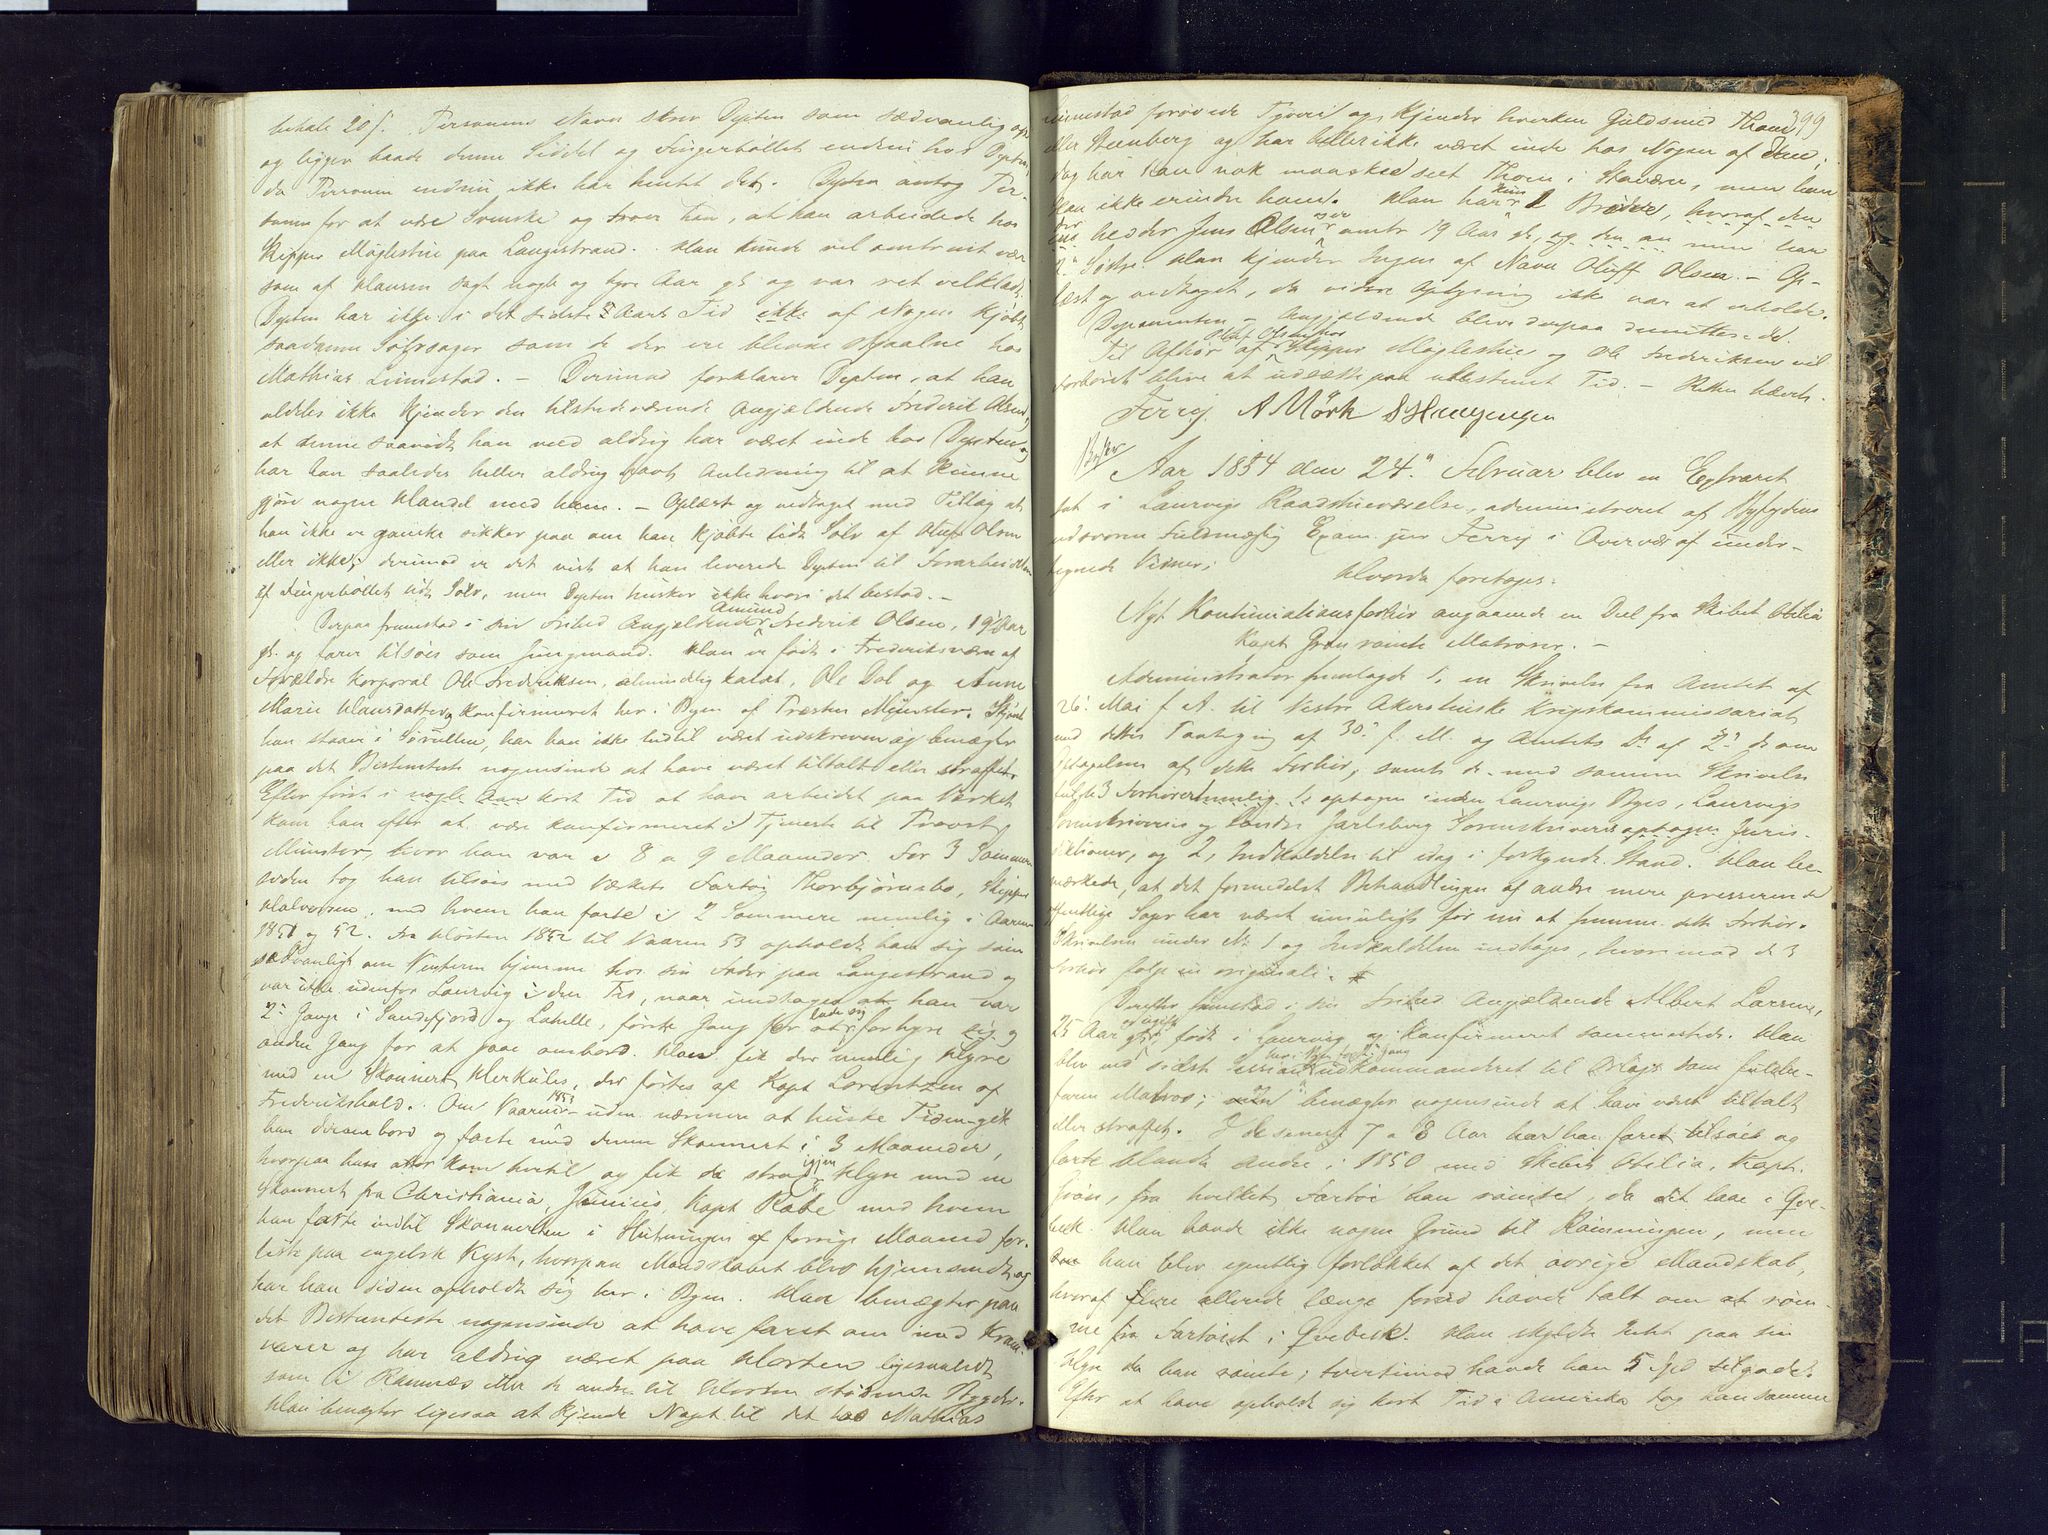 betale 20 f. Personens Navn skrev Dpten som sædvanlig op
og ligger baade denne Seddel og Fingerbøllet endnu hos Dpten
da Personen endnu ikke har hentet det. Dpten antog Per-
sonen for at være Svenske og troer han, at han arbeidede hos
Skipper Møglestue paa Langestrand. Han kunde vel omtrent være
som af Hansen sagt nogle og tyve Aar gl. og var ret velklædt.
Dpten har ikke i det sidste Aars Tid ikke af Nogen kjøbt
saadanne Sølvsager som de der ere blevne stjaalne hos
Mathias Linnestad. — Derimod forklarer Dpten, at han
aldeles ikke kjender den tilstedeværende Angjældende Frederik Olsen,
at denne saavidt han veed aldrig har været inde hos Dpten og
har han saaledes heller aldrig havt Anledning til at kunne
gjøre nogen Handel med ham. — Oplæst og vedtaget med Tillæg at
han ikke er ganske sikker paa om han kjøbte lidt Sølv af Oluf Olsen
eller ikke, derimod er det vist at han leverede Dpten til Forarbeidelsen
af Fingerbøllet lidt Sølv, men Dpten husker ikke hvori det bestod. —
Derpaa fremstod i sin Frihed Angjældende Amund Frederik Olsen, 19 Aar
gl. og farer tilsøis som Jungmand. Han er født i Frederiksværn af
Forældre Korporal Ole Frederiksen, almindelig kaldt, Ole Dol og Anne
Marie Hansdatter, konfirmeret her i Byen af Præsten Münster. Skjønt
han staaer i Sørullen, har han ikke indtil været udskreven og benægter
paa det Bestemteste nogensinde at have været tiltalt eller straffet.
Efter først i nogle Aar kort Tid at have arbeidet paa Værket
kom han efter at være konfirmeret i Tjeneste til Provst
Münster, hvor han var i 8 a 9 Maaneder. For 3 Sommere
siden tog han tilsøis med Værkets Fartøi Thorbjørnsbo, Skipper
Halvorsen, med hvem han farte i 2 Sommere nemlig i Aarene
1851 og 52. Fra Høsten 1852 til Vaaren 53 opholdt han sig som
sædvanligt om Vinteren hjemme hos sin Fader paa Langestrand og
var ikke udenfor Laurvig i den Tid, naar undtages at han var
2de Gange i Sandefjord og Lahelle, første Gang for at lade sig forhyre og
anden Gang for at gaae ombord. Han fik der nemlig Hyre
med en Skonnert Herkules, der førtes af Kapt Lorentzen af
Frederikshald. Om Vaaren 1853 uden nærmere at huske Tiden gik
han derombord og farte med denne Skonnert i 3 Maaneder,
hvorpaa han atter kom hertil og fik da strax igjen Hyre med en
Skonnert fra Christiania Junius, Kapt Rabe med hvem
han farte indtil Skonnerten i Slutningen af forrige Maaned for-
liste paa engelsk Kyst, hvorpaa Mandskabet blev hjemsendt og
har han siden opholdt sig her i Byen. Han benægter paa
det Bestemteste nogensinde at have faret om med Kram-
varer og har aldrig været paa Horten ligesaalidt
som i Ramnæs eller de andre til Horten stødende Bygder.
Han benægter ligesaa at kjende Noget til det hos Mathias
399
Linnestad forøvede Tyveri og kjender hverken Guldsmed Thom
eller Steenberg og har heller ikke været inde hos Nogen af dem;
dog har han nok maaskee seet Thom i Stavern, men kan
han ikke erindre ham. Han har kun 1 Broder, hvoraf den
hedder Jens Olsen er omtr 19 Aar gl, og den an men har
2de Søstre. Han kjender Ingen af Navn Oluff Olsen. — Op-
læst og vedtaget, da videre Oplysning ikke var at erholde.
Deponenten — Angjældende bleve derpaa dimitterede.
Til Afhør af Skipper Møglestue og Ole Frederiksen vil
Forhøret blive at udsætte paa ubestemt Tid. — Retten hævet.
Ferry A Mörk S Haagensen
Aar 1854 den 24de Februar blev en Extraret
sat i Laurvigs Raadstueværelse, administreret af Byfogdens
edsvorne Fuldmægtig Exam. jur Ferry i Overvær af under-
tegnede Vidner;
Hvorda foretoges:
Nyt Kontinuationsforhør angaaende en Deel fra Skibet Otilia
Kapt Grøn rømte Matroser. —
Administrator fremlagde 1, en Skrivelse fra Amtet af
26de Mai f A. til Vestre Akershuuske Krigskommissariat
med dettes Paategning af 30te f. M. og Amtets Do af 2de ds om
Optagelsen af dette Forhør, samt de med samme Skrivelse
fulgte 3 Forhører nemlig 1, optagne inden Laurvigs Byes, Laurvigs
Sorenskriveries og søndre Jarlsberg Sorenskriveries optagne Juris-
diktioner, og 2, Indkaldelse til idag i forkyndt Stand. Han be-
mærkede, at det formedelst Behandlingen af andre mere presserende
offentlige Sager har været umuligt før nu at fremme dette Forhør.
Skrivelsen under No 1 og Indkaldelsen indtages, hvorimod de 3
Forhør følge in originali.
Derefter fremstod i sin Frihed Angjældende Albert Larsen,
25 Aar gl. er ugift født i Laurvig og konfirmeret sammesteds. Han
blev ved sidste Session her i Byen første Gang udkommanderet til Orlogs som fuldbe-
faren Matros; benægter nogensinde at have været tiltalt
eller straffet. I de senest 7 a 8 Aar har han faret tilsøes og
farte blandt andre i 1850 med Skibet Otilia, Kapt.
Grøn, fra hvilket Fartøi han rømte, da det laae i Qve-
bek. Han havde ikke nogen Grund til Rømningen, men
han blev egentlig forlokket af det øvrige Mandskab,
hvoraf flere allerede længe forud havde talt om at røm-
me fra Fartøiet i Qvebek. Han skyldte Intet paa sin
Hyre da han rømte; tvertimod havde han 5 Spd tilgode.
Efter at have opholdt sig kort Tid i Amerika tog han samme